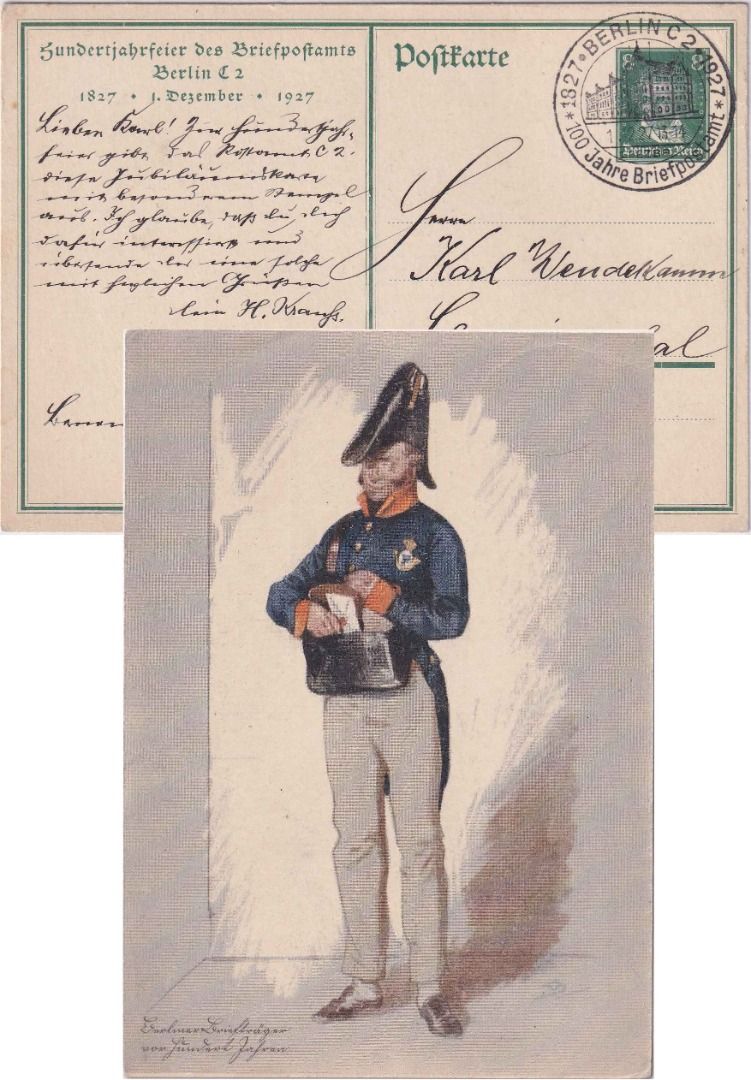 Hundertjahrfeier des Briefpostamts
Berlin C 2
1827 • 1. Dezember • 1927
Lieber Karl! Zur Hundertjahr-
feier gibt das Postamt C 2
diese Jubiläumskarte
mit besonderem Stempel
aus. Ich glaube, daß du dich
dafür interessirst und
übersende dir eine solche
mit herzlichen Grüßen
dein H.
Postkarte
* 1827 * BERLIN C 2 * 1927 *
100 Jahre Briefpostamt
8 8
Deutsches Reich
Herrn
Karl Wendekamm
Berliner Briefträger
vor hundert Jahren